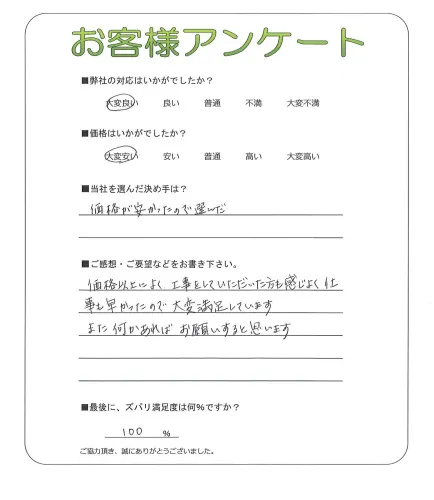 お客様アンケート
■弊社の対応はいかがでしたか？
大変良い 良い 普通 不満 大変不満
■価格はいかがでしたか？
大変安い 安い 普通 高い 大変高い
■当社を選んだ決め手は？
価格が安かったので選んだ
■ご感想・ご要望などをお書き下さい。
価格以上によく工事をしていただいた方も感じよく仕
事も早かったので大変満足しています
また何かあればお願いすると思います
■最後に、ズバリ満足度は何％ですか？
100 %
ご協力頂き、誠にありがとうございました。